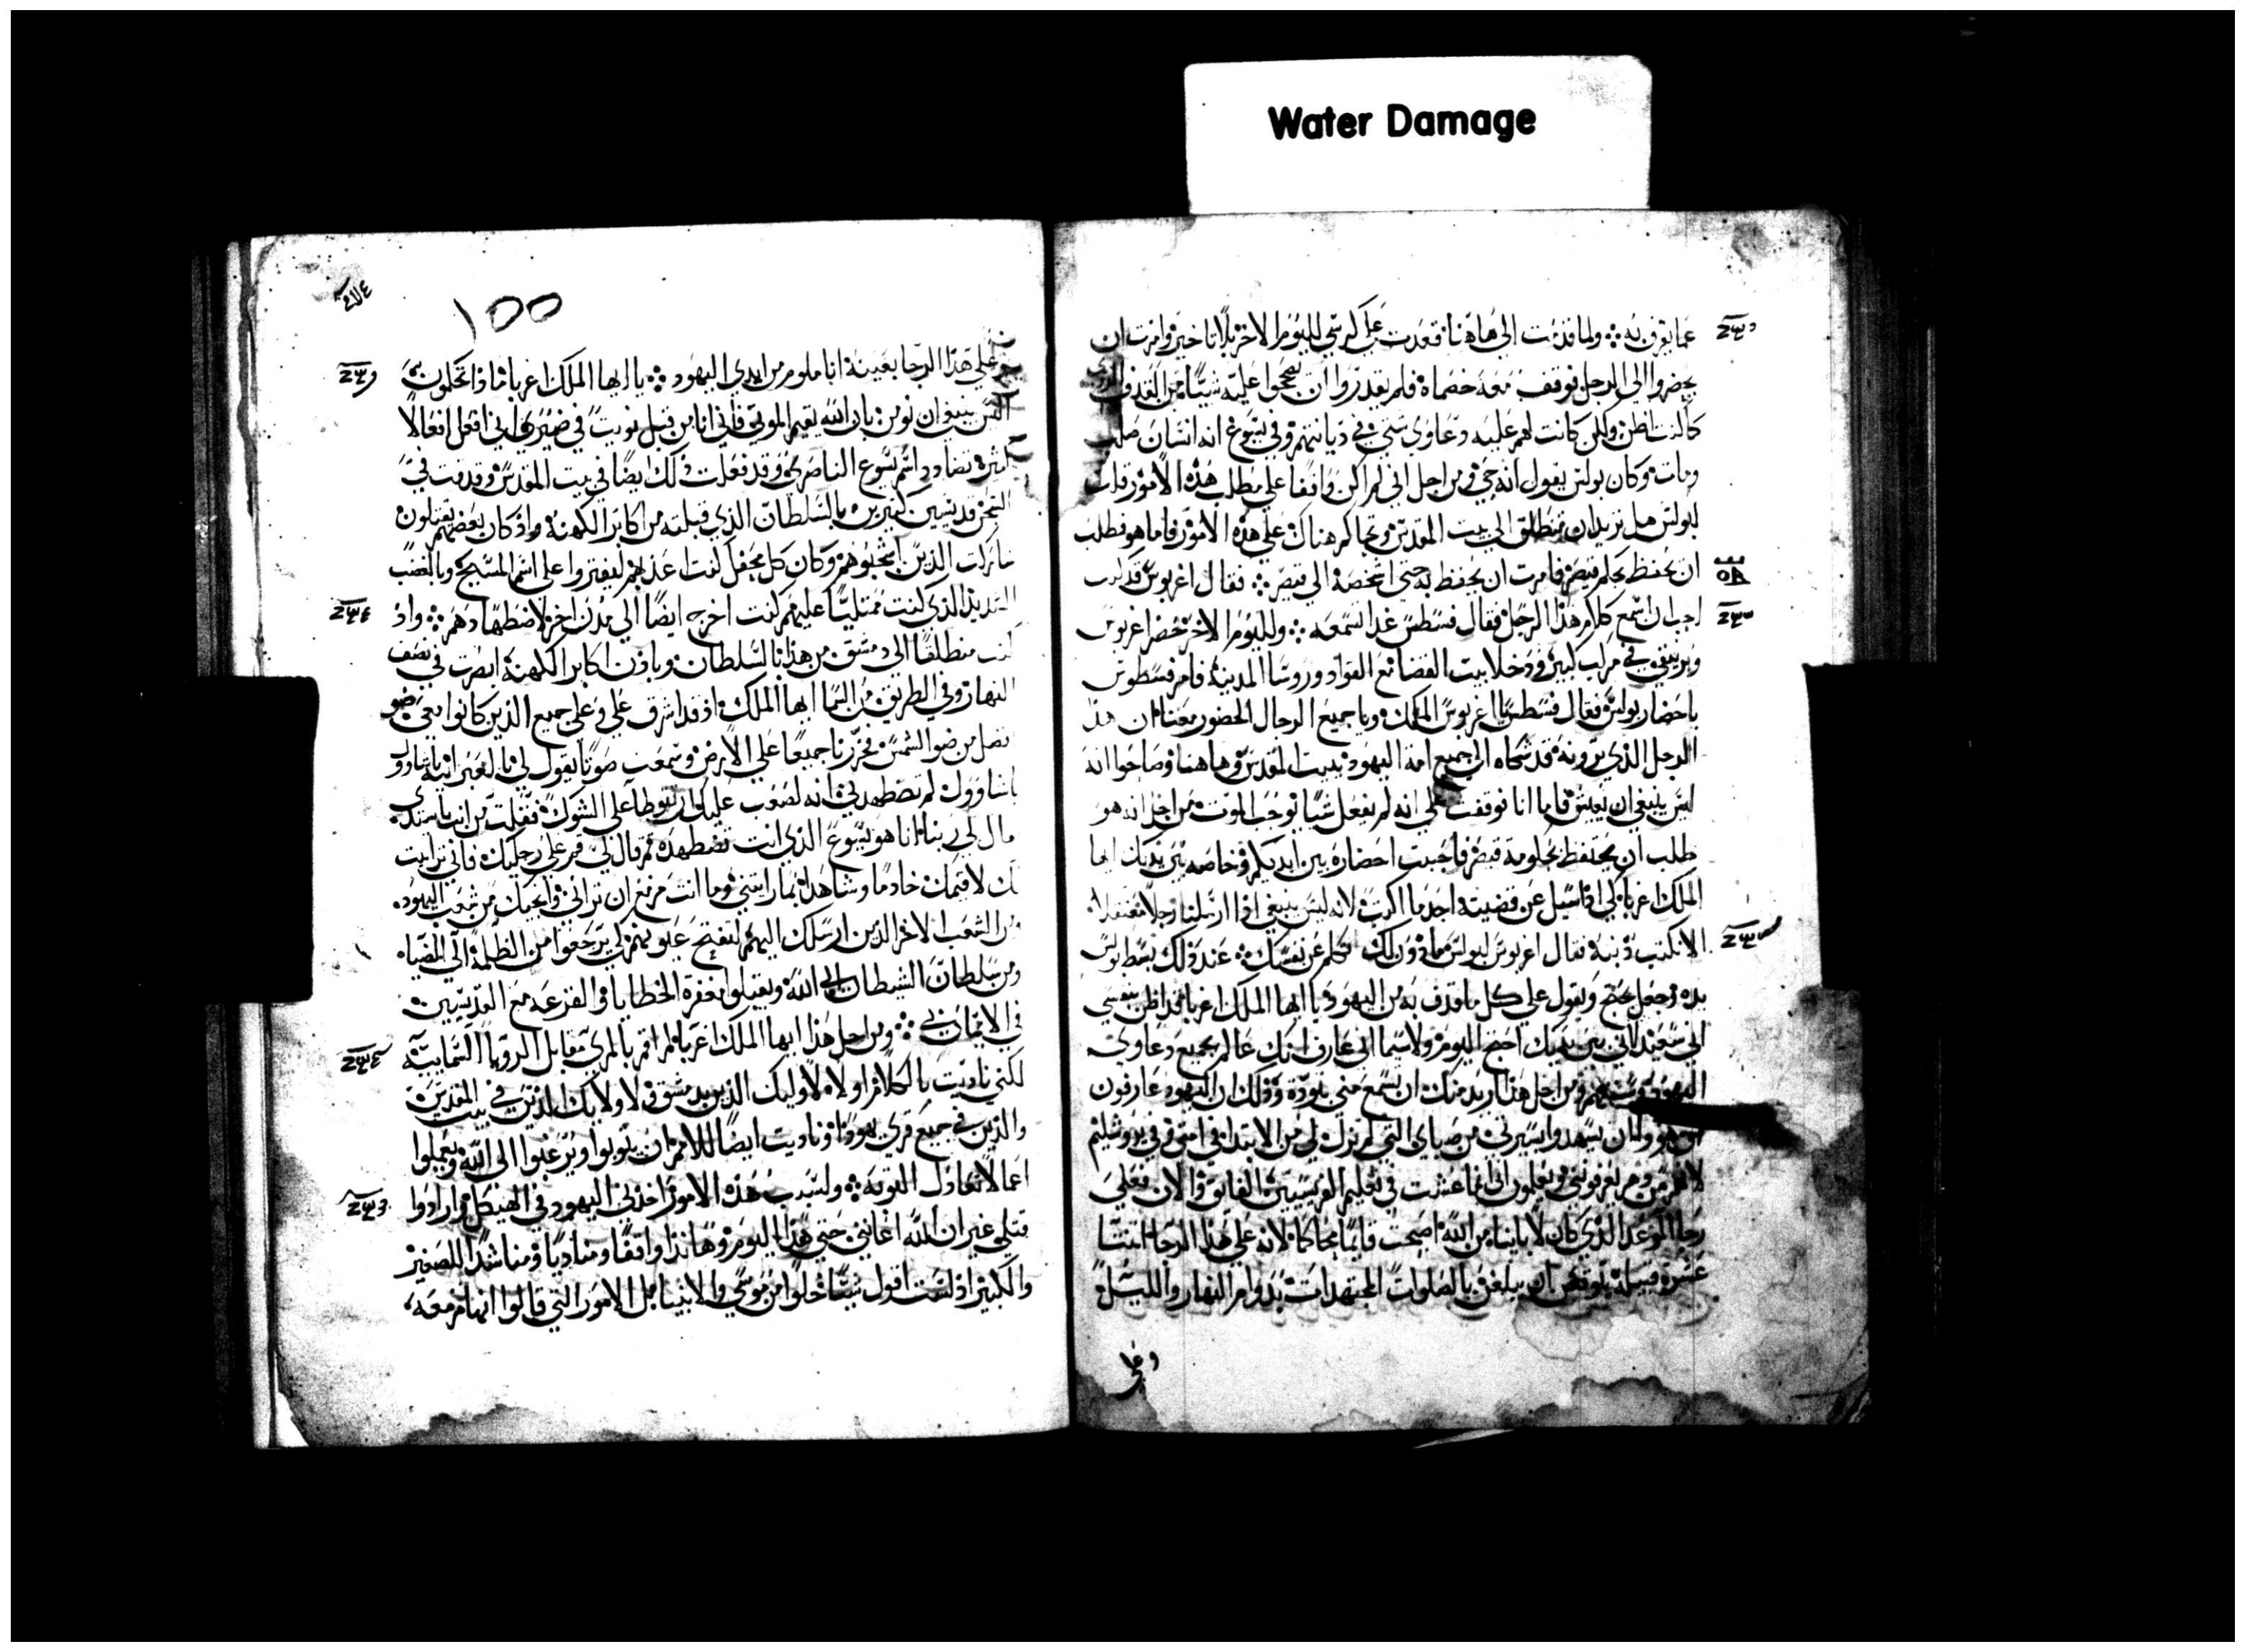 Water Damage
عما يقرف به ❖ ولما قدمت الى هاهنا قعدت على كرسي لليوم الاخر بلا تاخير وامرت ان
يحضروا الي الرجل فوقف معه خصماه فلم يقدروا ان يصححوا عليه شيئا من القذف
كما كنت اظن ولكن كانت لهم عليه دعاوى شتى في ديانتهم وفي يسوع انه انسان صلب
ومات وكان بولس يقول انه حي ومن اجل اني لم اكن واقفا على مطلب هذه الامور قلت
لبولس هل تريد ان تنطلق الى بيت المقدس وتحاكم هناك على هذه الامور فاما هو فطلب
ان يحفظ لحكم قيصر فامرت ان يحفظ به حتى اشخصه الى قيصر ❖ فقال اغربوس قد
احب ان اسمع كلام هذا الرجل فقال فسطس غدا تسمعه ❖ ولليوم الاخر حضر اغربوس
وبرنيقي في مركب كبير ودخلا بيت القضا مع القواد وروسا المدينة فامر فسطوس
باحضار بولس فقال فسطس يا اغربوس الملك ويا جميع الرجال الحضور معنا ان هذا
الرجل الذي ترونه قد شكاه الي جميع امة اليهود ببيت المقدس وهاهنا وصاحوا انه
ليس ينبغي ان يعيش فاما انا فوقفت على انه لم يفعل شيئا يوجب الموت ومن اجل انه هو
طلب ان يحتفظ لحكومة قيصر فاحببت احضاره بين ايديكم وخاصه بين يديك ايها
الملك اغربا لكي اذا سيل عن قضيته اجد ما اكتب لانه ليس ينبغي اذا ارسلنا رجلا معتقلا
الا نكتب ذنبه فقال اغربوس لبولس ماذون لك تكلم عن نفسك ❖ عند ذلك بسط بولس
يده وجعل يحتج ويقول على كل ما قذف به من اليهود يا ايها الملك اغربا قد اظن بنفسي
اني سعيد لاني بين يديك احتج اليوم ولا سيما اني عارف انك عالم بجميع دعاوى
اليهود ومن اجل هذا اريد منك ان تسمع مني بتودة وذلك ان اليهود عارفون
ان يشهدوا بسيرتي من صباي التي لم تزل لي من الابتدا في امتي وفي يروشليم
يعرفوني ويعلمون اني انما عشت في تعليم الفريسيين الفايق والان فعلى
رجا الموعد الذي كان لاباينا من الله اصبحت قايما محاكما لانه على هذا الرجا اثنتا
عشرة قبيلة يتوقعن ان يبلغن بالصلوات المجتهدات بدوام النهار والليل
وعلى
١٥٥
وعلى هذا الرجا بعينه انا ملوم من ايدي اليهود ❖ يا ايها الملك اغربا ماذا تحكمون
اليس ينبغي ان نومن بان الله يقيم الموتى فاني انا من قبل نويت في ضميري اني افعل افعالا
كثيرة تضادد اسم يسوع الناصري وقد فعلت ذلك ايضا في بيت المقدس وقدمت في
السجن قديسين كثيرين بالسلطان الذي قبلته من اكابر الكهنة واذ كان بعضهم يقتلون
شاركت الذين اشجبوهم وكان كل محفل كنت اعذبهم ليفتروا على اسم المسيح وبالغضب
الشديد الذي كنت ممتليا عليهم كنت اخرج ايضا الى مدن اخر لاضطهادهم ❖ واذ
كنت منطلقا الى دمشق من هذا بالسلطان وباذن اكابر الكهنة ابصرت في نصف
النهار وفي الطريق من السما ايها الملك اذ قد اشرق علي وعلى جميع الذين كانوا معي ضو
افضل من ضو الشمس فخررنا جميعا على الارض وسمعت صوتا يقول لي بالعبرانية يا شاوول
يا شاوول لم تضطهدني انه لصعب عليك ان توطا على الشوك فقلت من انت يا سيدي
قال لي ربنا انا هو يسوع الذي انت تضطهده ثم قال لي قم على رجليك فاني تراييت
لك لاقيمك خادما وشاهدا بما رايتني وما انت مزمع ان تراني وانجيك من شعب اليهود
ومن الشعب الاخر الذين ارسلك اليهم لتفتح عيونهم لكي يرجعوا من الظلمة الى الضياه
ومن سلطان الشيطان الى الله ويقبلوا مغفرة الخطايا والقرعه مع القديسين
في الايمان بي ❖ ومن اجل هذا ايها الملك اغربا لم اقم بالمري مقابل الرويا السمايية
لكني ناديت بالكلام اولا لاوليك الذين بدمشق ولاولايك الذين في بيت المقدس
والذين في جميع قرى يهودا وناديت ايضا للامم ان يتوبوا ويرغبوا الى الله ويعملوا
اعمالا تعادل التوبه ❖ ولسبب هذه الامور اخذني اليهود في الهيكل وارادوا
قتلي غير ان الله اعانني حتى هذا اليوم وهانذا واقفا ومناديا ومناشدا للصغير
والكبير اذ لست اقول شيئا خلوا من موسى والانبيا بل الامور التي قالوا انها مزمعه